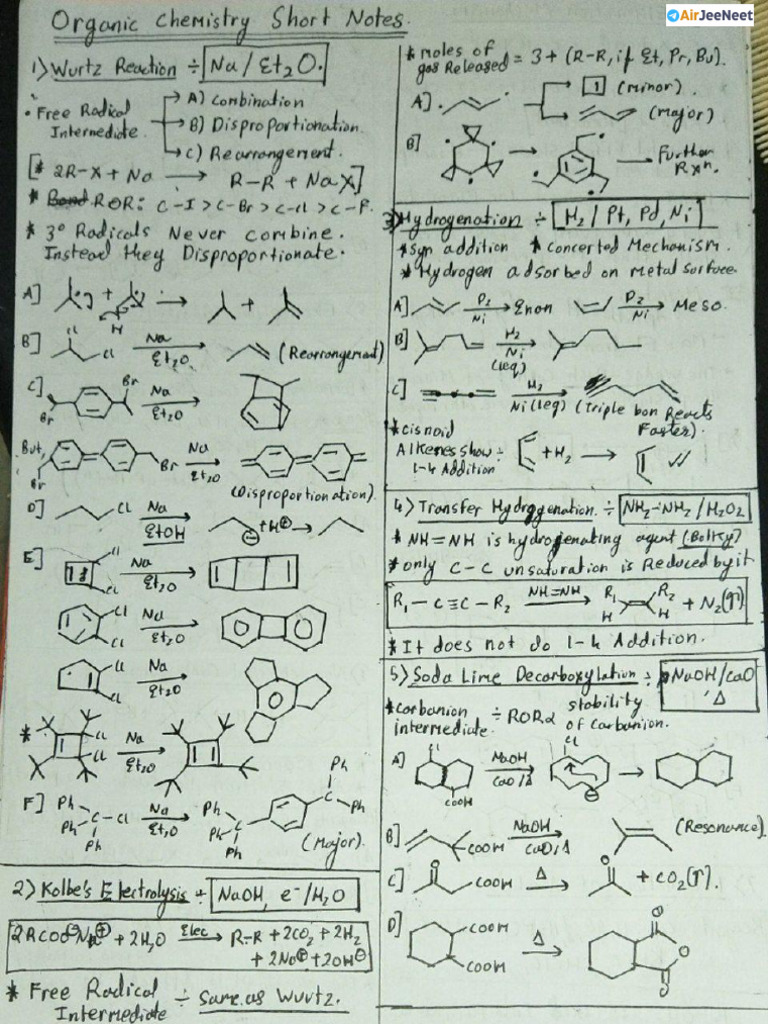 AirJeeNeet
Organic Chemistry Short Notes.
1) Wurtz Reaction ÷ Na/Et₂O.
• Free Radical Intermediate
→ A) Combination
→ B) Disproportionation
→ C) Rearrangement.
[* 2R-X + Na → R-R + NaX]
* ROR: C-I > C-Br > C-Cl > C-F.
* 3° Radicals Never Combine.
Instead they Disproportionate.
A] + → +
H
B] Cl Cl Na Et₂O → (Rearrangement)
C] Br Br Na Et₂O →
But, Br Br Na Et₂O →
(Disproportionation).
D] Cl Na EtOH → ⊖ + H⊕ →
E] Cl Cl Na Et₂O →
Cl Cl Na Et₂O →
Cl Cl Na Et₂O →
* Cl Cl Na Et₂O →
F] Ph Ph Ph C-Cl Na Et₂O → Ph Ph Ph C C Ph Ph Ph
(Major).
2) Kolbe's Electrolysis ÷ NaOH, e⁻/H₂O
2RCOO⊖Na⊕ + 2H₂O Elec → R-R + 2CO₂ + 2H₂
+ 2Na⊕ + 2OH⊖
* Free Radical Intermediate ÷ Same as Wurtz.
* moles of gas Released = 3 + (R-R, if Et, Pr, Bu).
A]. → (minor)
→ (major)
B] → → Further Rxⁿ.
3) Hydrogenation ÷ H₂/Pt, Pd, Ni
* Syn addition * Concerted Mechanism.
* Hydrogen adsorbed on metal surface
A] Ni → Ni → Meso.
B] H₂ Ni (1eq) →
C] H₂ Ni (1eq) → (Triple bon Reacts Faster).
* cisnoid
Alkenes show ÷ 1-4 Addition + H₂ →
4) Transfer Hydrogenation. ÷ NH₂-NH₂/H₂O₂
* NH=NH is hydrogenating agent
* only C-C unsaturation is Reduced by it
R₁-C≡C-R₂ NH=NH → R₁ R₂ H H + N₂(↑)
* It does not do 1-4 Addition.
5) Soda Lime Decarboxylation ÷ NaOH/CaO, Δ
* Carbanion intermediate ÷ ROR α stability of Carbanion.
A] Cl COOH NaOH CaO/Δ → Cl ⊖ →
B] COOH NaOH CaO, Δ → (Resonance).
C] O COOH Δ → O + CO₂(↑).
D] COOH COOH Δ → O O O